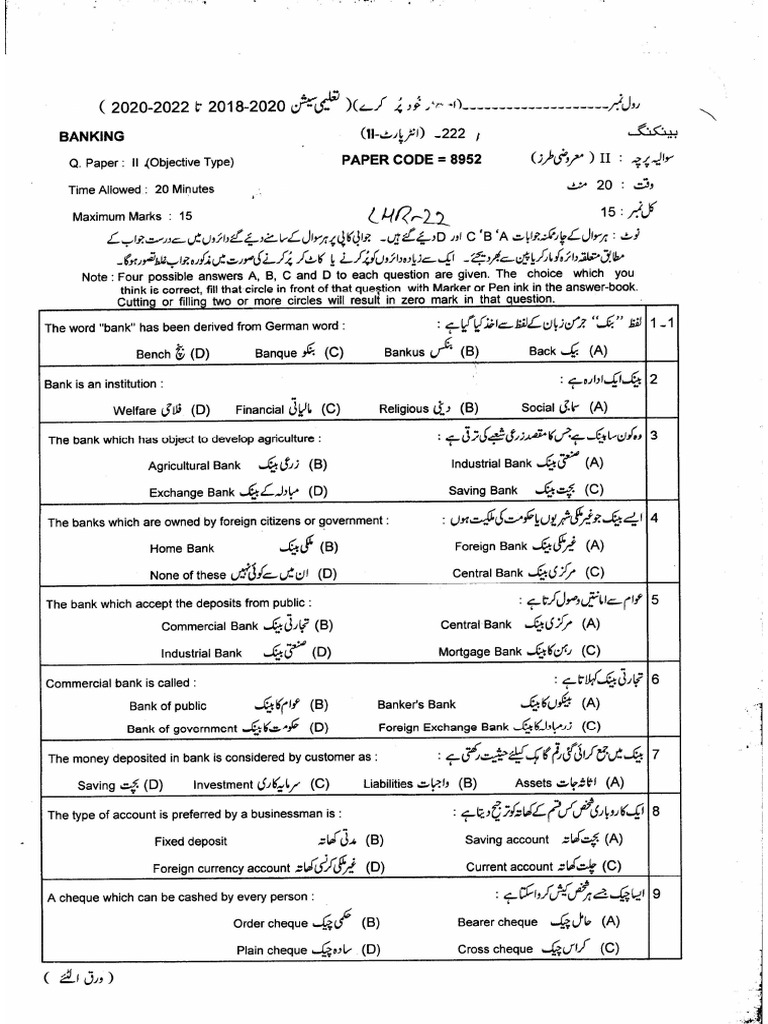 رول نمبر ‎--------------------(امیدوار خود پُر کرے)( تعلیمی سیشن 2020-2018 تا 2022-2020 )
BANKING 222- (انٹر پارٹ-II) بینکنگ
Q. Paper : II (Objective Type) PAPER CODE = 8952 سوالیہ پرچہ : II ( معروضی طرز )
Time Allowed : 20 Minutes وقت : 20 منٹ
Maximum Marks : 15 LHR-22 کل نمبر : 15
نوٹ : ہر سوال کے چار ممکنہ جوابات A‘ B‘ C اور D دیئے گئے ہیں۔ جوابی کاپی پر ہر سوال کے سامنے دیئے گئے دائروں میں سے درست جواب کے
مطابق متعلقہ دائرہ کو مارکر یا پین سے بھر دیجئے۔ ایک سے زیادہ دائروں کو پُر کرنے یا کاٹ کر پُر کرنے کی صورت میں مذکورہ جواب غلط تصور ہوگا۔
Note : Four possible answers A, B, C and D to each question are given. The choice which you
think is correct, fill that circle in front of that question with Marker or Pen ink in the answer-book.
Cutting or filling two or more circles will result in zero mark in that question.
The word "bank" has been derived from German word : لفظ ”بنک“ جرمن زبان کے لفظ سے اخذ کیا گیا ہے : 1-1
Bench بنچ (D) Banque بنکو (C) Bankus بنکس (B) Back بیک (A)
Bank is an institution : بینک ایک ادارہ ہے : 2
Welfare فلاحی (D) Financial مالیاتی (C) Religious دینی (B) Social سماجی (A)
The bank which has object to develop agriculture : وہ کون سا بینک ہے جس کا مقصد زرعی شعبے کی ترقی ہے : 3
Agricultural Bank زرعی بینک (B) Industrial Bank صنعتی بینک (A)
Exchange Bank مبادلہ کے بینک (D) Saving Bank بچت بینک (C)
The banks which are owned by foreign citizens or government : ایسے بینک جو غیر ملکی شہریوں یا حکومت کی ملکیت ہوں : 4
Home Bank ملکی بینک (B) Foreign Bank غیر ملکی بینک (A)
None of these ان میں سے کوئی نہیں (D) Central Bank مرکزی بینک (C)
The bank which accept the deposits from public : عوام سے امانتیں وصول کرتا ہے : 5
Commercial Bank تجارتی بینک (B) Central Bank مرکزی بینک (A)
Industrial Bank صنعتی بینک (D) Mortgage Bank رہن کا بینک (C)
Commercial bank is called : تجارتی بینک کہلاتا ہے : 6
Bank of public عوام کا بینک (B) Banker's Bank بینکوں کا بینک (A)
Bank of government حکومت کا بینک (D) Foreign Exchange Bank زرمبادلہ کا بینک (C)
The money deposited in bank is considered by customer as : بینک میں جمع کرائی گئی رقم گاہک کیلئے حیثیت رکھتی ہے : 7
Saving بچت (D) Investment سرمایہ کاری (C) Liabilities واجبات (B) Assets اثاثہ جات (A)
The type of account is preferred by a businessman is : ایک کاروباری شخص کس قسم کے کھاتہ کو ترجیح دیتا ہے : 8
Fixed deposit مدتی کھاتہ (B) Saving account بچت کھاتہ (A)
Foreign currency account غیر ملکی کرنسی کھاتہ (D) Current account چلت کھاتہ (C)
A cheque which can be cashed by every person : ایسا چیک جسے ہر شخص کیش کرواسکتا ہے : 9
Order cheque حکمی چیک (B) Bearer cheque حامل چیک (A)
Plain cheque سادہ چیک (D) Cross cheque کراس چیک (C)
( ورق الٹئے )